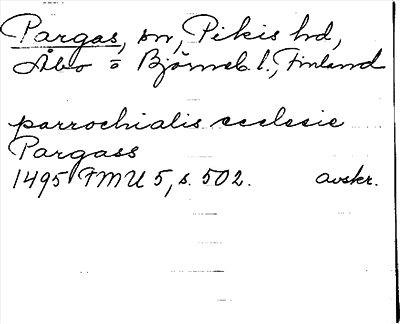 Pargas, sn, Pikis hd,
Åbo o Björneb l., Finland
parrochialis ecclesie
Pargass
1495 FMU 5, s. 502. avskr.